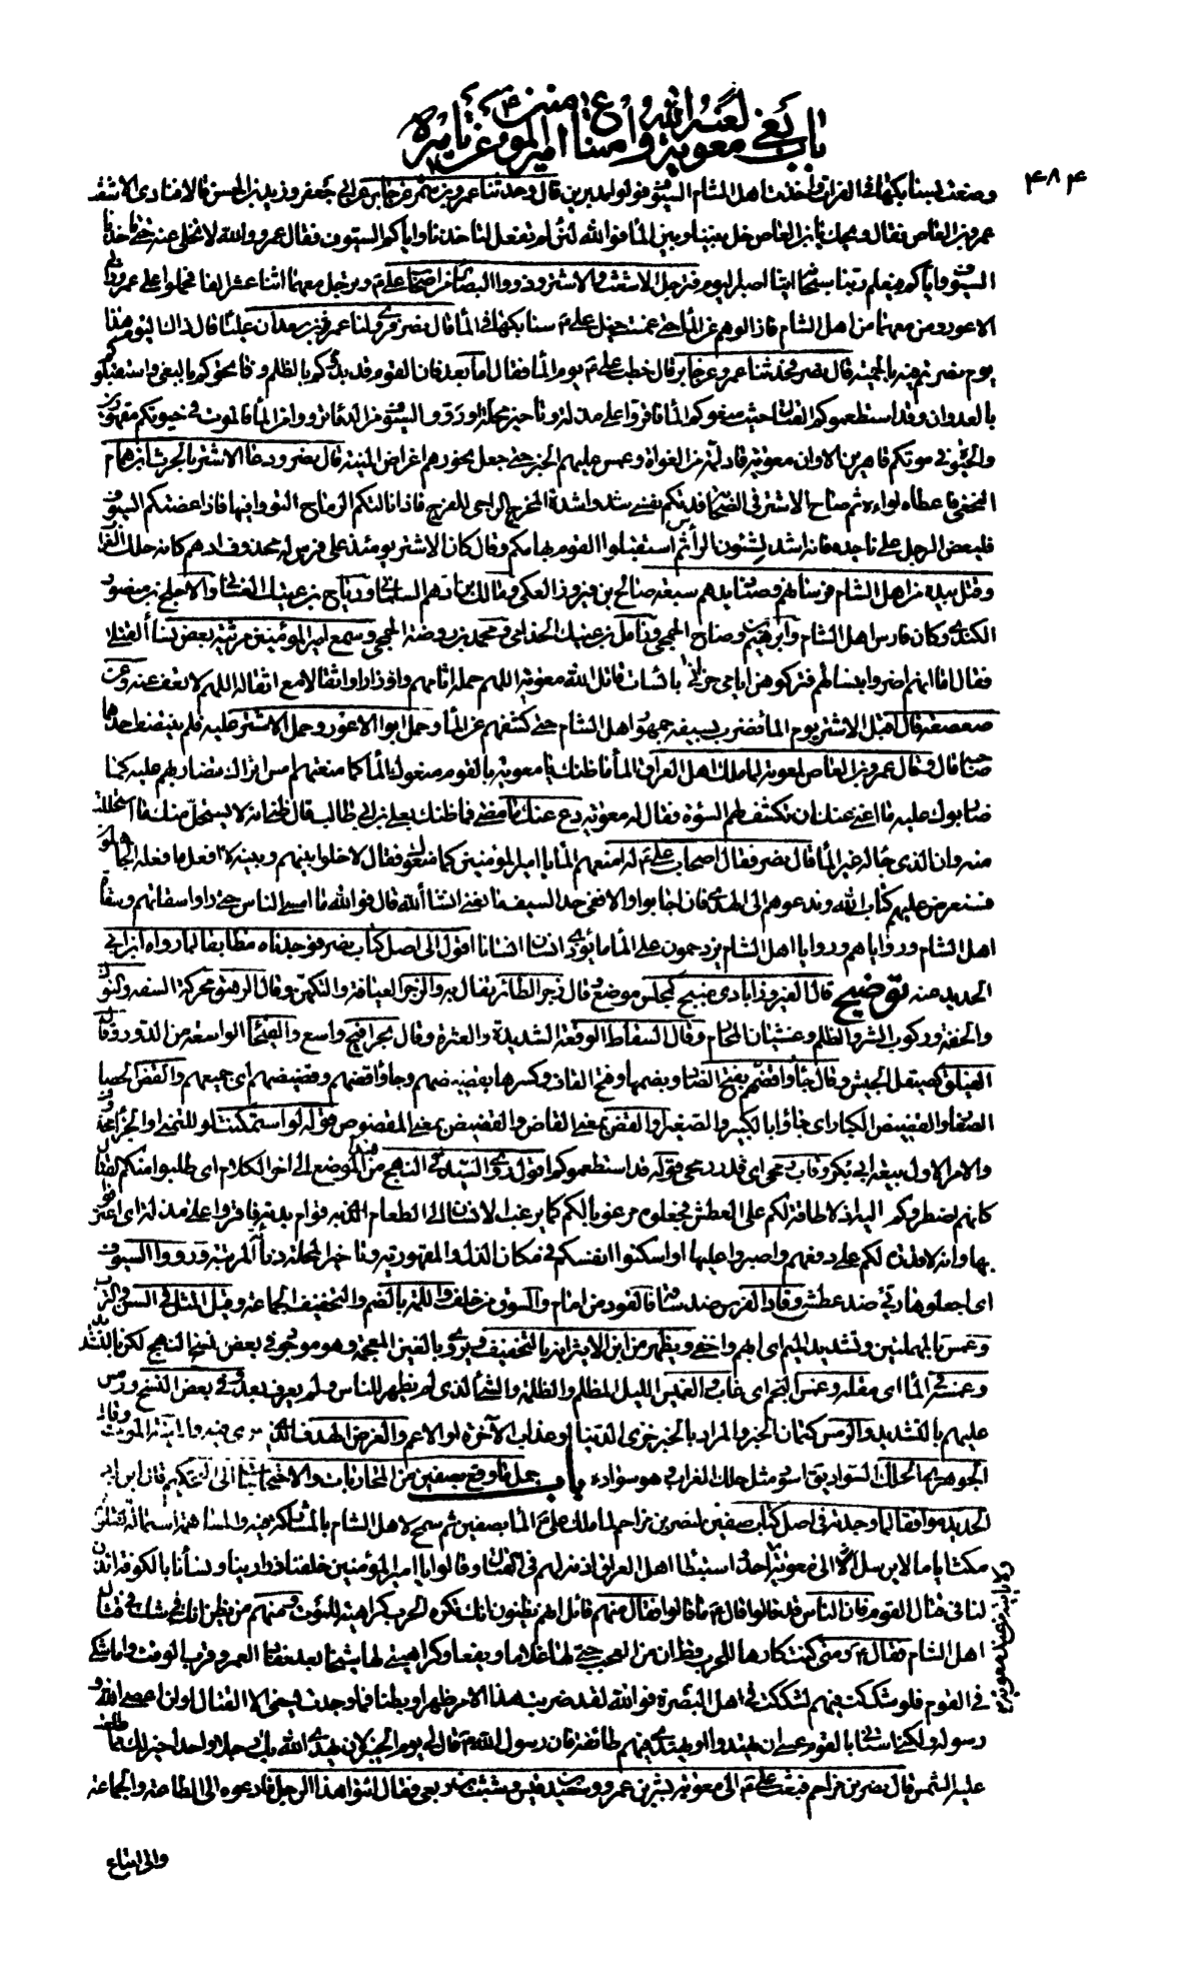 باب بغي معوية لعنه الله وامتناع امير المؤمنين ع عن تاميره
۴۸۴
وصنعت لسنا بكتها في الفرات واخذت اهل الشام السيوف فولوا مدبرين قال وحدثنا عمرو بن شمر عن جابر عن ابي جعفر وزيد بن الحسن قالا فنادى الاشعث
عمرو بن العاص فقال ويحك يا بن العاص خل بيننا وبين الماء فو الله لئن لم تفعل لتاخذنا واياكم السيوف فقال عمرو والله لا نخلي عنه حتى تاخذنا
السيوف واياكم فيعلم ربنا سبحانه اينا اصبر اليوم فترجل الاشعث والاشتر وذووا البصائر من اصحاب علي ع وترجل معهما اثنا عشر الفا فحملوا على عمرو وابي
الاعور ومن معهما من اهل الشام فازالوهم عن الماء حتى غمست خيل علي ع سنابكها في الماء قال نصر فروى لنا عمر بن سعد ان عليا قال ذاك اليوم هذا
يوم نصرتم فيه بالحمية قال نصر فحدثنا عمرو عن جابر قال خطب علي ع يوم الماء فقال اما بعد فان القوم قد بدؤكم بالظلم وفاتحوكم بالبغي واستقبلوكم
بالعدوان وقد استطعموكم القتال حيث منعوكم الماء فاقروا على مذلة وتاخير محلة او رووا السيوف من الدماء ترووا من الماء فالموت في حيوتكم مقهورين
والحيوة في موتكم قاهرين الا وان معوية قاد لمة من الغواة وعمس عليهم الخبر حتى جعل نحورهم اغراض المنية قال نصر ودعا الاشتر بالحرث بن همام
النخعي فاعطاه لواءه ثم صاح الاشتر في اصحابه فدتكم نفسي شدوا شدة المحرج الراجي للفرج فاذا نالتكم الرماح التووا فيها فاذا عضتكم السيوف
فليعض الرجل على ناجذه فانه اشد لشئون الراس ثم استقبلوا القوم بهامكم وقال كان الاشتر يومئذ على فرس له محذوف ادهم كانه حلك الغراب
وقتل بيده من اهل الشام من فرسانهم وصناديدهم سبعة صالح بن فيروز العكي ومالك بن ادهم السلماني ورياح بن عتيك الغساني والاجلح بن منصور
الكندي وكان فارس اهل الشام وابرهيم بن وضاح الجمحي وزامل بن عتيك الحذامي ومحمد بن روضة الجمحي وسمع امير المؤمنين مرثية بعض نساء القتلى
فقال اما انهم اضروا بنسائهم فتركوهن ايامى حزانى بائسات قاتل الله معوية اللهم حمله اثامهم واوزارا واثقالا مع اثقاله اللهم لا تعف عنه وعن
صعصعة قال اقبل الاشتر يوم الماء فضرب بسيفه جمهور اهل الشام حتى كشفهم عن الماء وحمل ابو الاعور وحمل الاشتر عليه فلم ينتصف احدهما
صاحبه قال وقال عمرو بن العاص لمعوية لما ملك اهل العراق الماء ما ظنك يا معوية بالقوم منعوك الماء كما منعتهم امس اتراك تضاربهم عليه كما
ضاربوك عليه ما اغنى عنك ان تكشف لهم السوءة فقال له معوية دع عنك ما مضى فما ظنك بعلي بن ابي طالب قال ظني انه لا يستحل منك ما استحللت
منه وان الذي جاء له غير الماء قال نصر فقال اصحاب علي ع له امنعهم الماء يا امير المؤمنين كما منعوك فقال لا خلوا بينهم وبينه لا افعل ما فعله الجاهلون
فسنعرض عليهم كتاب الله وندعوهم الى الهدى فان اجابوا والا ففي حد السيف ما يغني انشاء الله قال فو الله ما امسى الناس حتى راوا سقاتهم وسقاة
اهل الشام وروايا هم وروايا اهل الشام يزدحمون على الماء ما يؤذي انسان انسانا اقول الى اصل كتاب نصر فوجدناه مطابقا لما رواه ابن ابي
الحديد عنه توضيح قال الفيروزابادي منبج كمجلس موضع وقال زجر الطائر تفال به والزجر العيافة والتكهن وقال الرهق محركة السفه والنوك
والخفة وركوب الشر والظلم وغشيان المحارم وقال السقاط الوقعة الشديدة والعثرة وقال بحر افيح واسع والفيحاء الواسعة من الدور وقال
الفيلق كصيقل الجيش وقال جاؤا قضهم بفتح الضاد وبضمها وفتح القاف وكسرها بقضيضهم وجاؤا قضهم وقضيضهم اي جميعهم والقض الحصا
الصغار والقضيض الكبار اي جاؤا بالكبير والصغير او القض بمعنى القاض والقضيض بمعنى المقضوض قوله لو استمكنت لو للتمني والجزاء محذوف
والامر الاول بيعة ابي بكر وقاب رمحي اي قدر رمحي قوله قد استطعموكم اقول روى السيد في النهج من هذا الموضع الى اخر الكلام اي طلبوا منكم القتال
كانهم لضطروكم اليه اذ لا طاقة لكم على العطش فجعلوه مرغوبا لكم كما يرغب الانسان الى الطعام الذي به قوام بدنه فاقروا على مذلة اي اعترفوا
بها وانه لا قدرة لكم على دفعهم واصبروا عليها او اسكنوا انفسكم في مكان الذل والمقهورية وتاخير المحلة دناءة المرتبة ورووا السيوف
اي اجعلوها ريا ضد عطشى وقاد الفرس ضد ساقه فالقود من امام والسوق من خلف واللمة بالضم والتخفيف الجماعة وقيل المثل في السن والترب
وعمس بالمهملتين وتشديد الميم اي ابهم واخفى ويظهر من ابن الاثير انه بالتخفيف ويروى بالغين المعجمة وهو موجود في بعض نسخ النهج لكن بالتشديد
وغمسه في الماء اي مقله وغمس النجم اي غاب والغميس الليل المظلم والظلمة والشيء الذي لم يظهر للناس ولم يعرف بعد وفي بعض النسخ ورمس
عليهم بالتشديد والرمس كتمان الخبر والمراد بالخبر خزي الدنيا او عذاب الآخرة او الاعم والغرض الهدف الذي يرمى فيه والمنية الموت وقال
الجوهري الحلك السواد يق اسود مثل حلك الغراب وهو سواده باب جمل ما وقع بصفين من المحاربات والاحتجاجات الى التحكيم قال ابن ابي
الحديد موافقا لما وجدته في اصل كتاب صفين لنصر بن مزاحم لما ملك علي ع الماء بصفين ثم سمح لاهل الشام بالمشاركة فيه والمساهمة استمالة لقلوبهم
مكث اياما لا يرسل الى معوية احدا ولا ياتيه من عند معوية احد واستبطا اهل العراق اذنه لهم في القتال وقالوا يا امير المؤمنين خلفنا ذرارينا ونساءنا بالكوفة ائذن
لنا في قتال القوم فان الناس قد قالوا قال ع ما قالوا فقال منهم قائل انهم يظنون انك تكره الحرب كراهية للموت ومنهم من يظن انك في شك في قتال
اهل الشام فقال ع ومتى كنت كارها للحرب قط ان من العجب حبي لها غلاما ويفعا وكراهيتي لها شيخا بعد نفاد العمر وقرب الوقت واما شكي
في القوم فلو شككت فيهم لشككت في اهل البصرة فو الله لقد ضربت هذا الامر ظهرا وبطنا فما وجدت يسعني الا القتال او ان اعصي الله و
رسوله ولكني استاني بالقوم عسى ان يهتدوا او يهتدي منهم طائفة فان رسول الله ص قال لي يوم الخيبر لان يهدي الله بك رجلا واحدا خير لك مما طلعت
عليه الشمس قال نصر بن مزاحم فبعث علي ع الى معوية بشير بن عمرو وسعيد بن قيس وشبث بن ربعي فقال ائتوا هذا الرجل فادعوه الى الطاعة والجماعة
والى اتباع